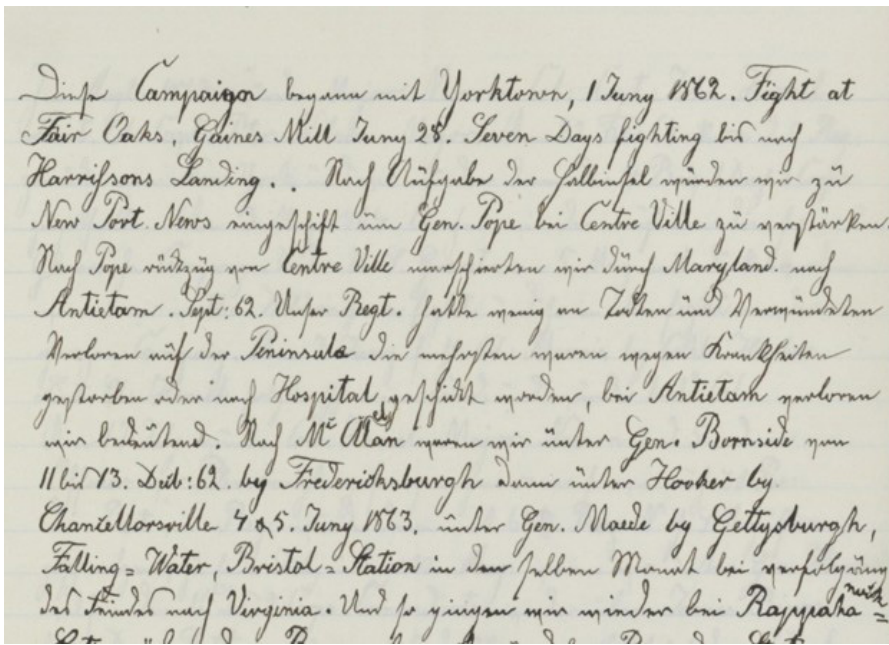 Diese Campaign begann mit Yorktown, 1 Juny 1862. Fight at
Fair Oaks, Gaines Mill Juny 28. Seven Days fighting bis nach
Harrissons Landing . . Nach Aufgabe der Halbinsel wurden wir zu
New Port. News eingeschift um Gen. Pope bei Centre Ville zu verstärken.
Nach Pope rückzug von Centre Ville marschierten wir durch Maryland. nach
Antietam. Sept: 62. Unser Regt. hatte wenig an Todten und Verwundeten
Verloren auf der Peninsula die mehrsten waren wegen Krankheiten
gestorben oder nach Hospital geschickt worden, bei Antietam verloren
wir bedeutend. Nach Mc Clellan waren wir unter Gen. Bornside von
11 bis 13. Dec: 62. by Fredericksburgh dann unter Hooker by
Chancellorsville 4 & 5. Juny 1863. unter Gen. Maede by Gettysburgh,
Falling = Water, Bristol = Station in den selben Monat bei verfolgung
des Feindes nach Virginia. Und so gingen wir wieder bei Rappahanock =